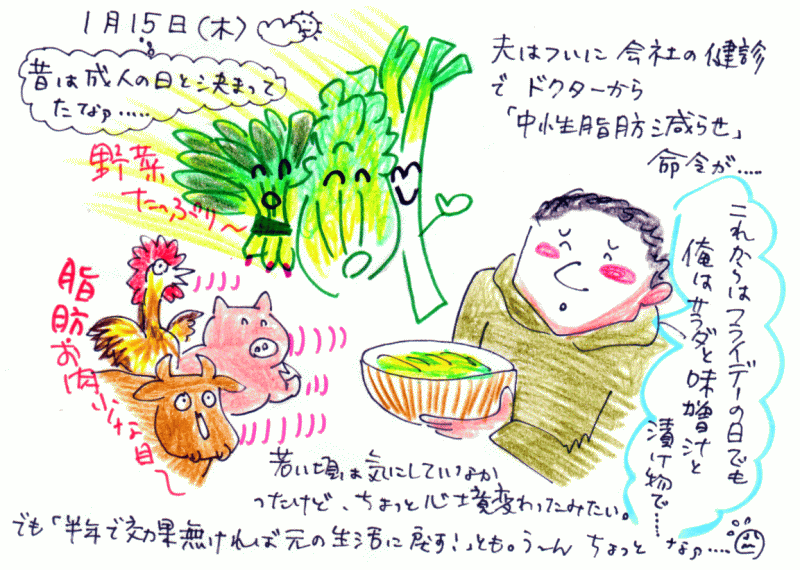 1月15日(木)
昔は成人の日と決まって
たなァ.....
夫はついに 会社の健診
で ドクターから
「中性脂肪減らせ」
命令が.....
野菜
たっぷり〜
脂肪お肉いけな目〜
これからはフライデーの日でも
俺はサラダと味噌汁と
漬け物で......
若い頃は気にしていなか
ったけど、ちょっと心境変わったみたい。
でも「半年で効果無ければ元の生活に戻す!」とも。う〜ん ちょっと なァ....